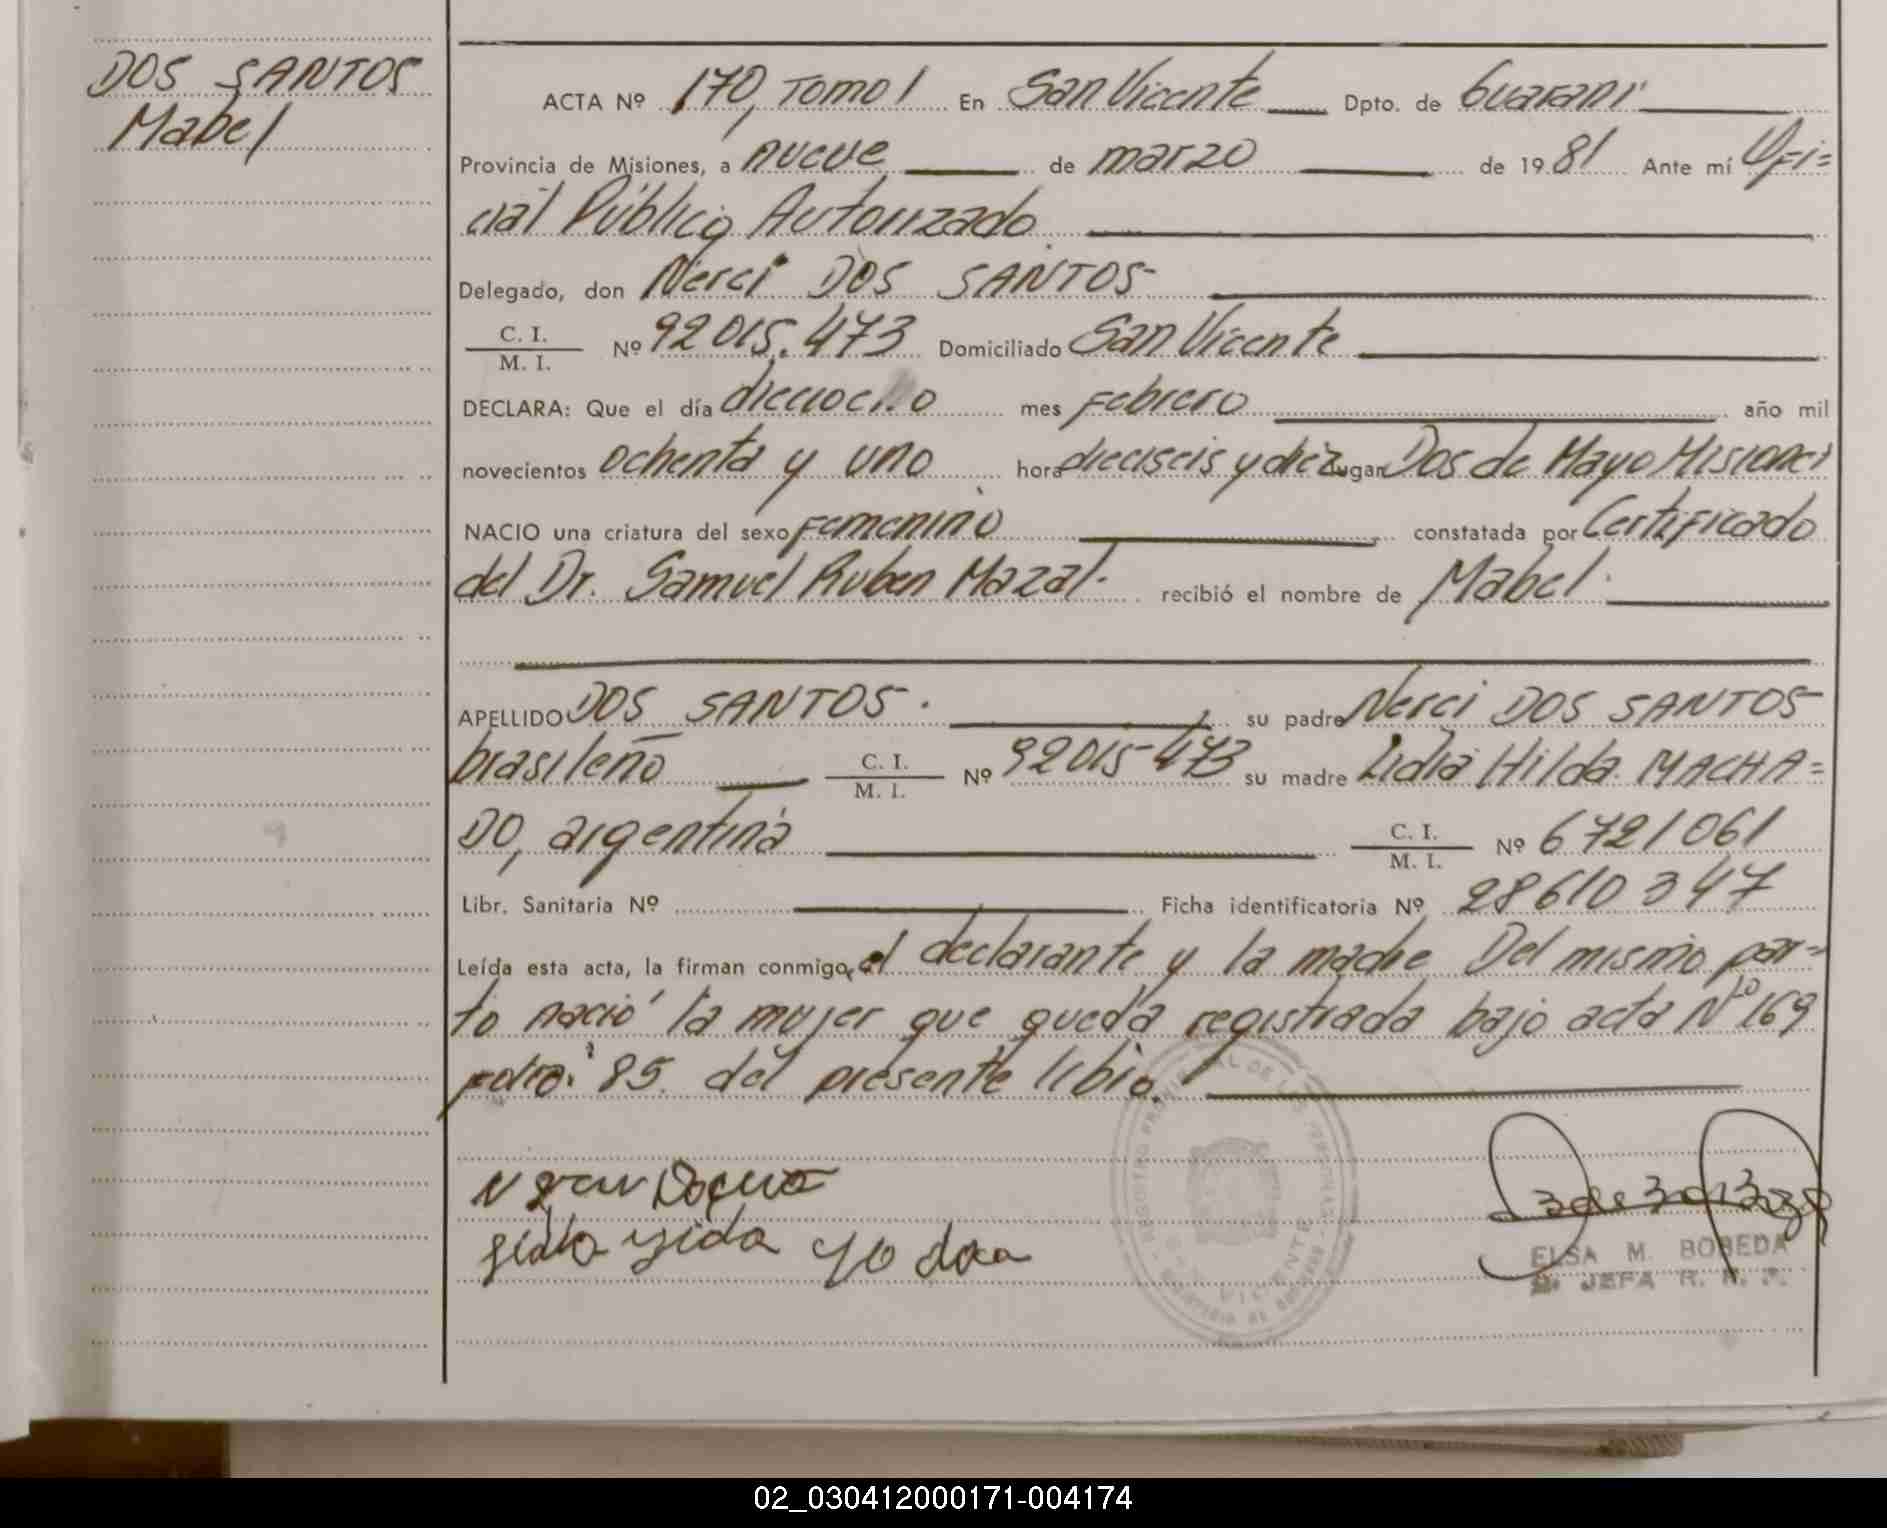 DOS SANTOS
Mabel
ACTA Nº 170, Tomo I En San Vicente Dpto. de Guaraní
Provincia de Misiones, a nueve de marzo de 1981 Ante mí Ofi=
cial Público Autorizado.
Delegado, don Nerci DOS SANTOS
C. I. / M. I. Nº 92015.473 Domiciliado San Vicente
DECLARA: Que el día dieciocho mes Febrero año mil
novecientos ochenta y uno hora dieciseis y diez Lugar Dos de Mayo Misiones
NACIO una criatura del sexo Femenino constatada por Certificado
del Dr. Samuel Ruben Mazal. recibió el nombre de Mabel.
APELLIDO DOS SANTOS. su padre Nerci DOS SANTOS
brasileño C. I. / M. I. Nº 92015473 su madre Lidia Hilda MACHA=
DO, argentina C. I. / M. I. Nº 6721061
Libr. Sanitaria Nº Ficha identificatoria Nº 28610347
Leída esta acta, la firman conmigo, el declarante y la madre Del mismo par=
to nació la mujer que queda registrada bajo acta Nº 169
85. del presente libro.
ELSA M. BOBEDA
JEFA R. P.
REGISTRO PROVINCIAL DE LAS PERSONAS
VICENTE
02_030412000171-004174